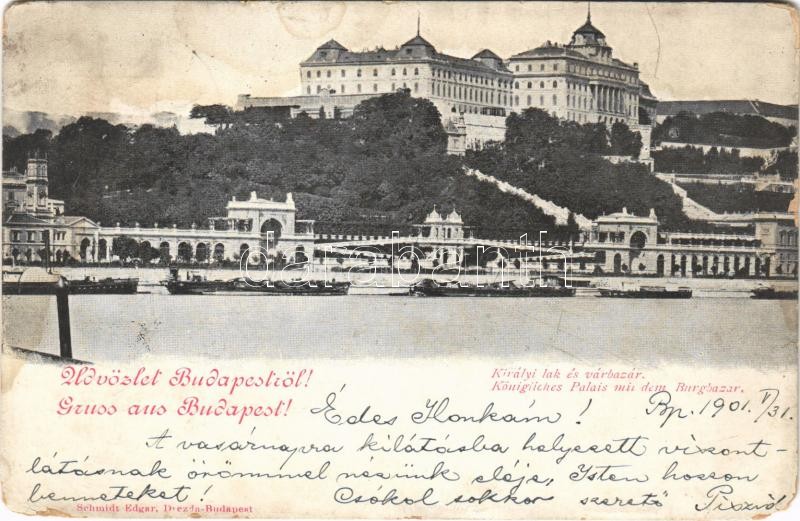 darabanth.com
Üdvözlet Budapestről!
Gruss aus Budapest!
Királyi lak és várbazár.
Königliches Palais mit dem Burgbazar.
Édes Ilonkám!
Bp. 1901. V/31.
A vasárnapra kilátásba helyezett viszont-
látásnak örömmel nézünk eléje, Isten hozzon
benneteket! Csókol sokszor szerető
Schmidt Edgar, Drezda-Budapest